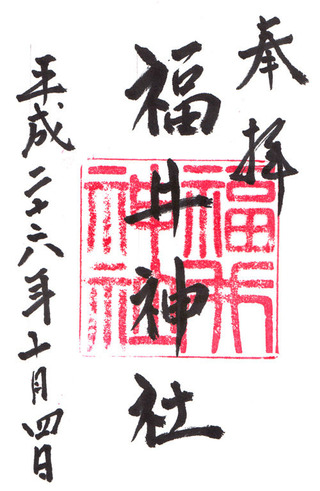 奉拝
福井神社
福井神社
平成二十六年十月四日